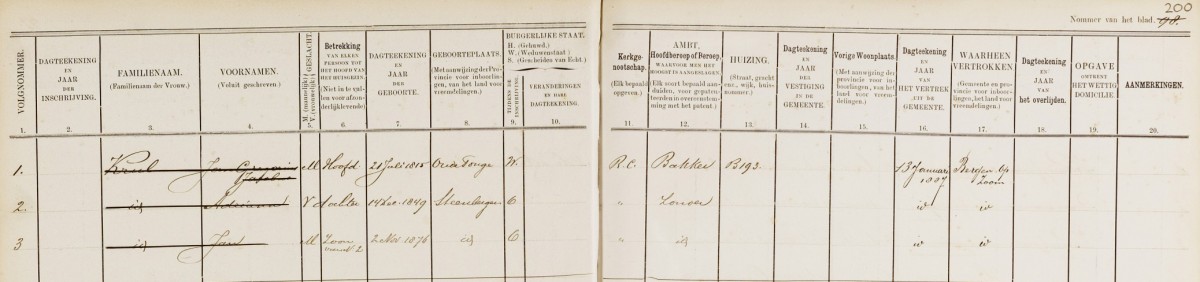 200
Nummer van het blad. 98.
VOLGNOMMER.
DAGTEEKENING
EN
JAAR
DER
INSCHRIJVING.
FAMILIENAAM.
(Familienaam der Vrouw.)
VOORNAMEN.
(Voluit geschreven.)
GESLACHT.
M. (mannelijk)
V. (vrouwelijk)
Betrekking
VAN ELKEN
PERSOON TOT
HET HOOFD VAN
HET HUISGEZIN.
DAGTEEKENING
EN
JAAR
DER
GEBOORTE.
GEBOORTEPLAATS.
(Met aanwijzing der Pro-
vincie voor inboorlin-
gen, van het land voor
vreemdelingen.)
BURGERLIJKE STAAT.
H. (Gehuwd.)
W. (Weduwenstaat.)
S. (Gescheiden van Echt.)
TIJDENS DE
INSCHRIJVING.
VERANDERINGEN
EN HARE
DAGTEEKENING.
Kerkge-
nootschap.
(Elk bepaald
opgeven.)
AMBT,
Hoofdberoep of Beroep,
WAARVOOR MEN HET
HOOGST IS AANGESLAGEN.
(Elk soort bepaald aan-
duiden, voor gepaten-
teerden in overeenstem-
ming met het patent.)
HUIZING.
(Straat, gracht
enz., wijk, huis-
nummer.)
Dagteekening
EN
JAAR
DER
VESTIGING
IN DE
GEMEENTE.
Vorige Woonplaats.
(Met aanwijzing der
provincie voor in-
boorlingen, van het
land voor vreem-
delingen.)
Dagteekening
EN
JAAR VAN
HET VERTREK
UIT DE
GEMEENTE.
WAARHEEN
VERTROKKEN.
(Gemeente en pro-
vincie voor inboor-
lingen, het land voor
vreemdelingen.)
Dagteekening
EN
JAAR VAN
het overlijden.
OPGAVE
OMTRENT
HET WETTIG
DOMICILIE.
AANMERKINGEN.
1. 2. 3. 4. 5. 6. 7. 8. 9. 10. 11. 12. 13. 14. 15. 16. 17. 18. 19. 20.
1. Jan M Hoofd 21 Juli 1815 Oude Tonge W. R.C. Bakker B193. 13 Januari Bergen op
Zoom
2. id Adriana V dochter 14 Dec. 1849 Steenbergen O " id id
3 id Jan M Zoon 2 Nov 1876 id O " id id id
van No 2